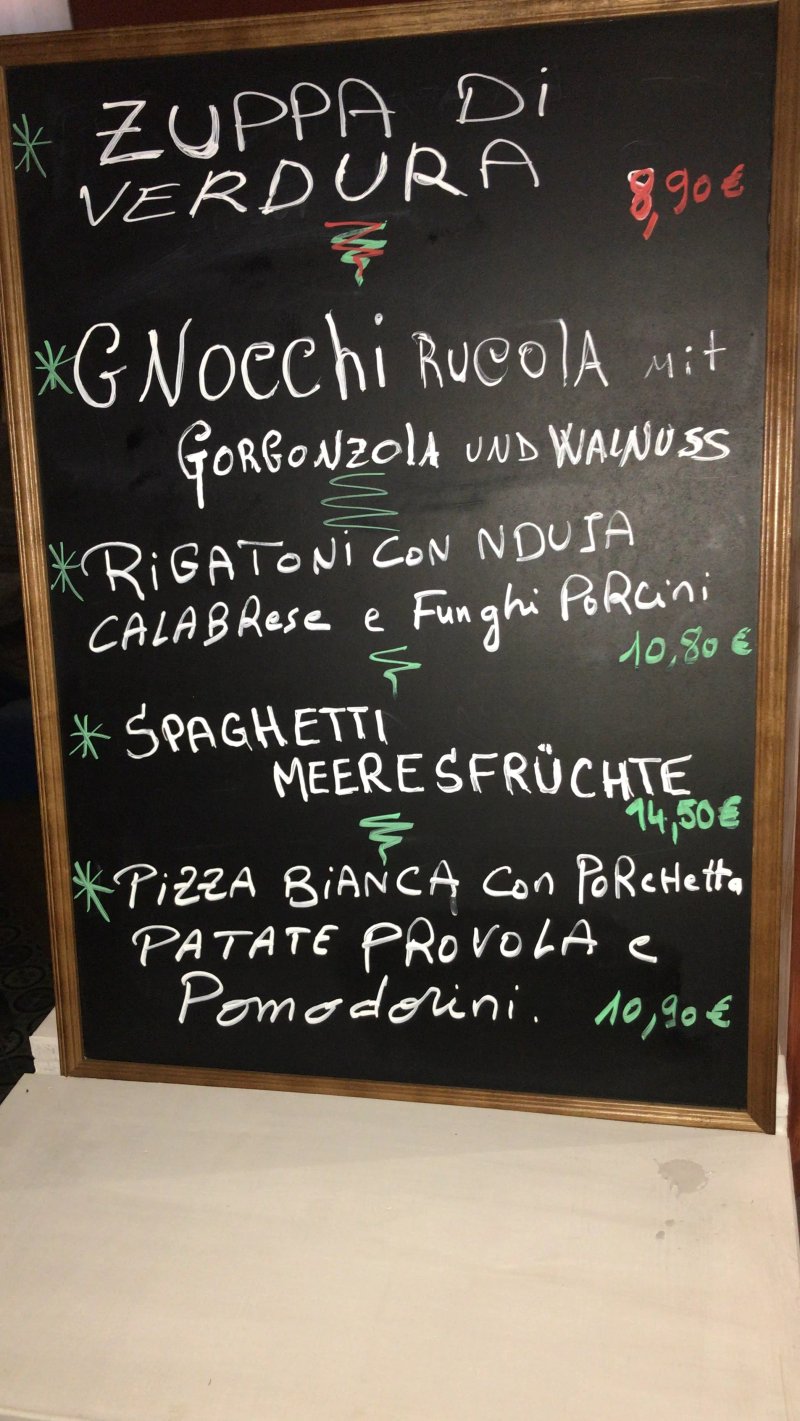 * ZUPPA Di
VERDURA
8,90 €
* GNOCChi RUCOlA Mit
GORGONZOlA UND WALNUSS
* RiGATONi CON NDUJA
CALABRese e Funghi PoRcini
10,80 €
* SPAGHETTI
MEERESFRÜCHTE
14,50 €
* PiZZA BiANCA Con PoRcHetta
PATATE PROVOLA e
Pomodorini.
10,90 €